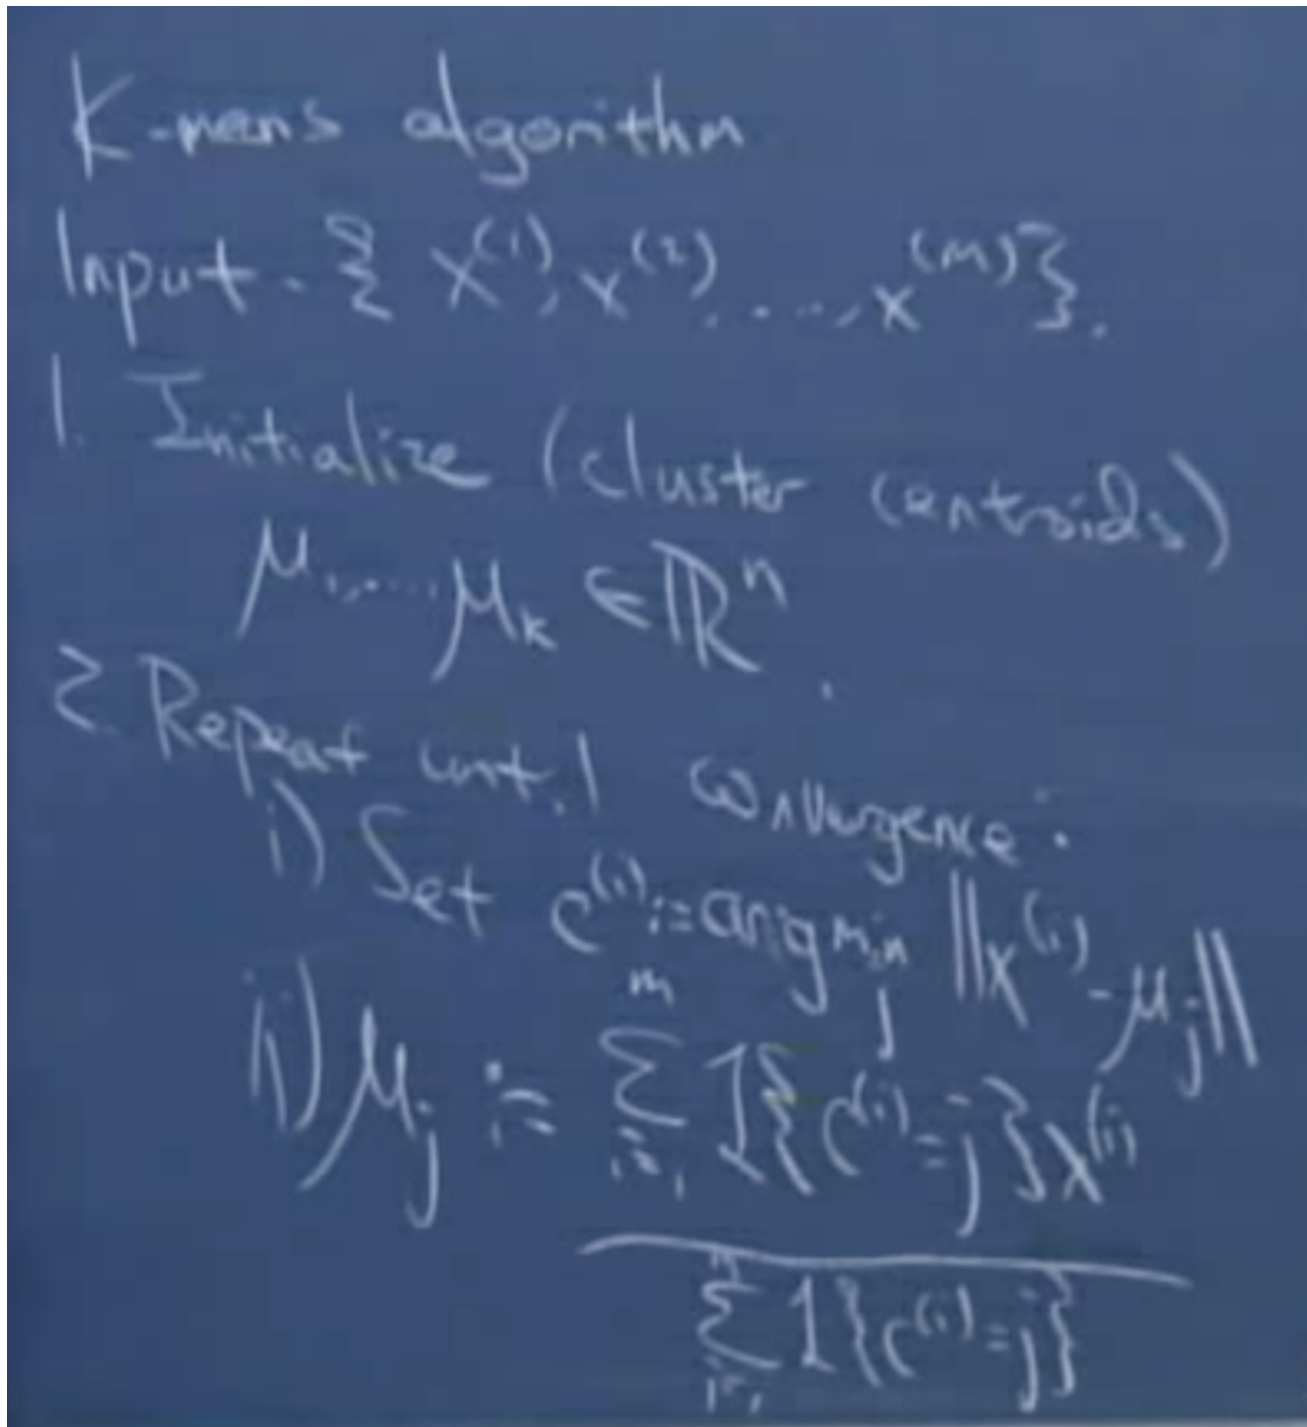 K-means algorithm
Input - { x^(1), x^(2), ..., x^(m) }.
1. Initialize (cluster centroids)
μ_1, ..., μ_k ∈ ℝ^n.
2. Repeat until convergence:
i) Set c^(i) := arg min_j ||x^(i) - μ_j||
ii) μ_j := ∑_{i=1}^m 1{c^(i) = j} x^(i)
∑_{i=1}^m 1{c^(i) = j}